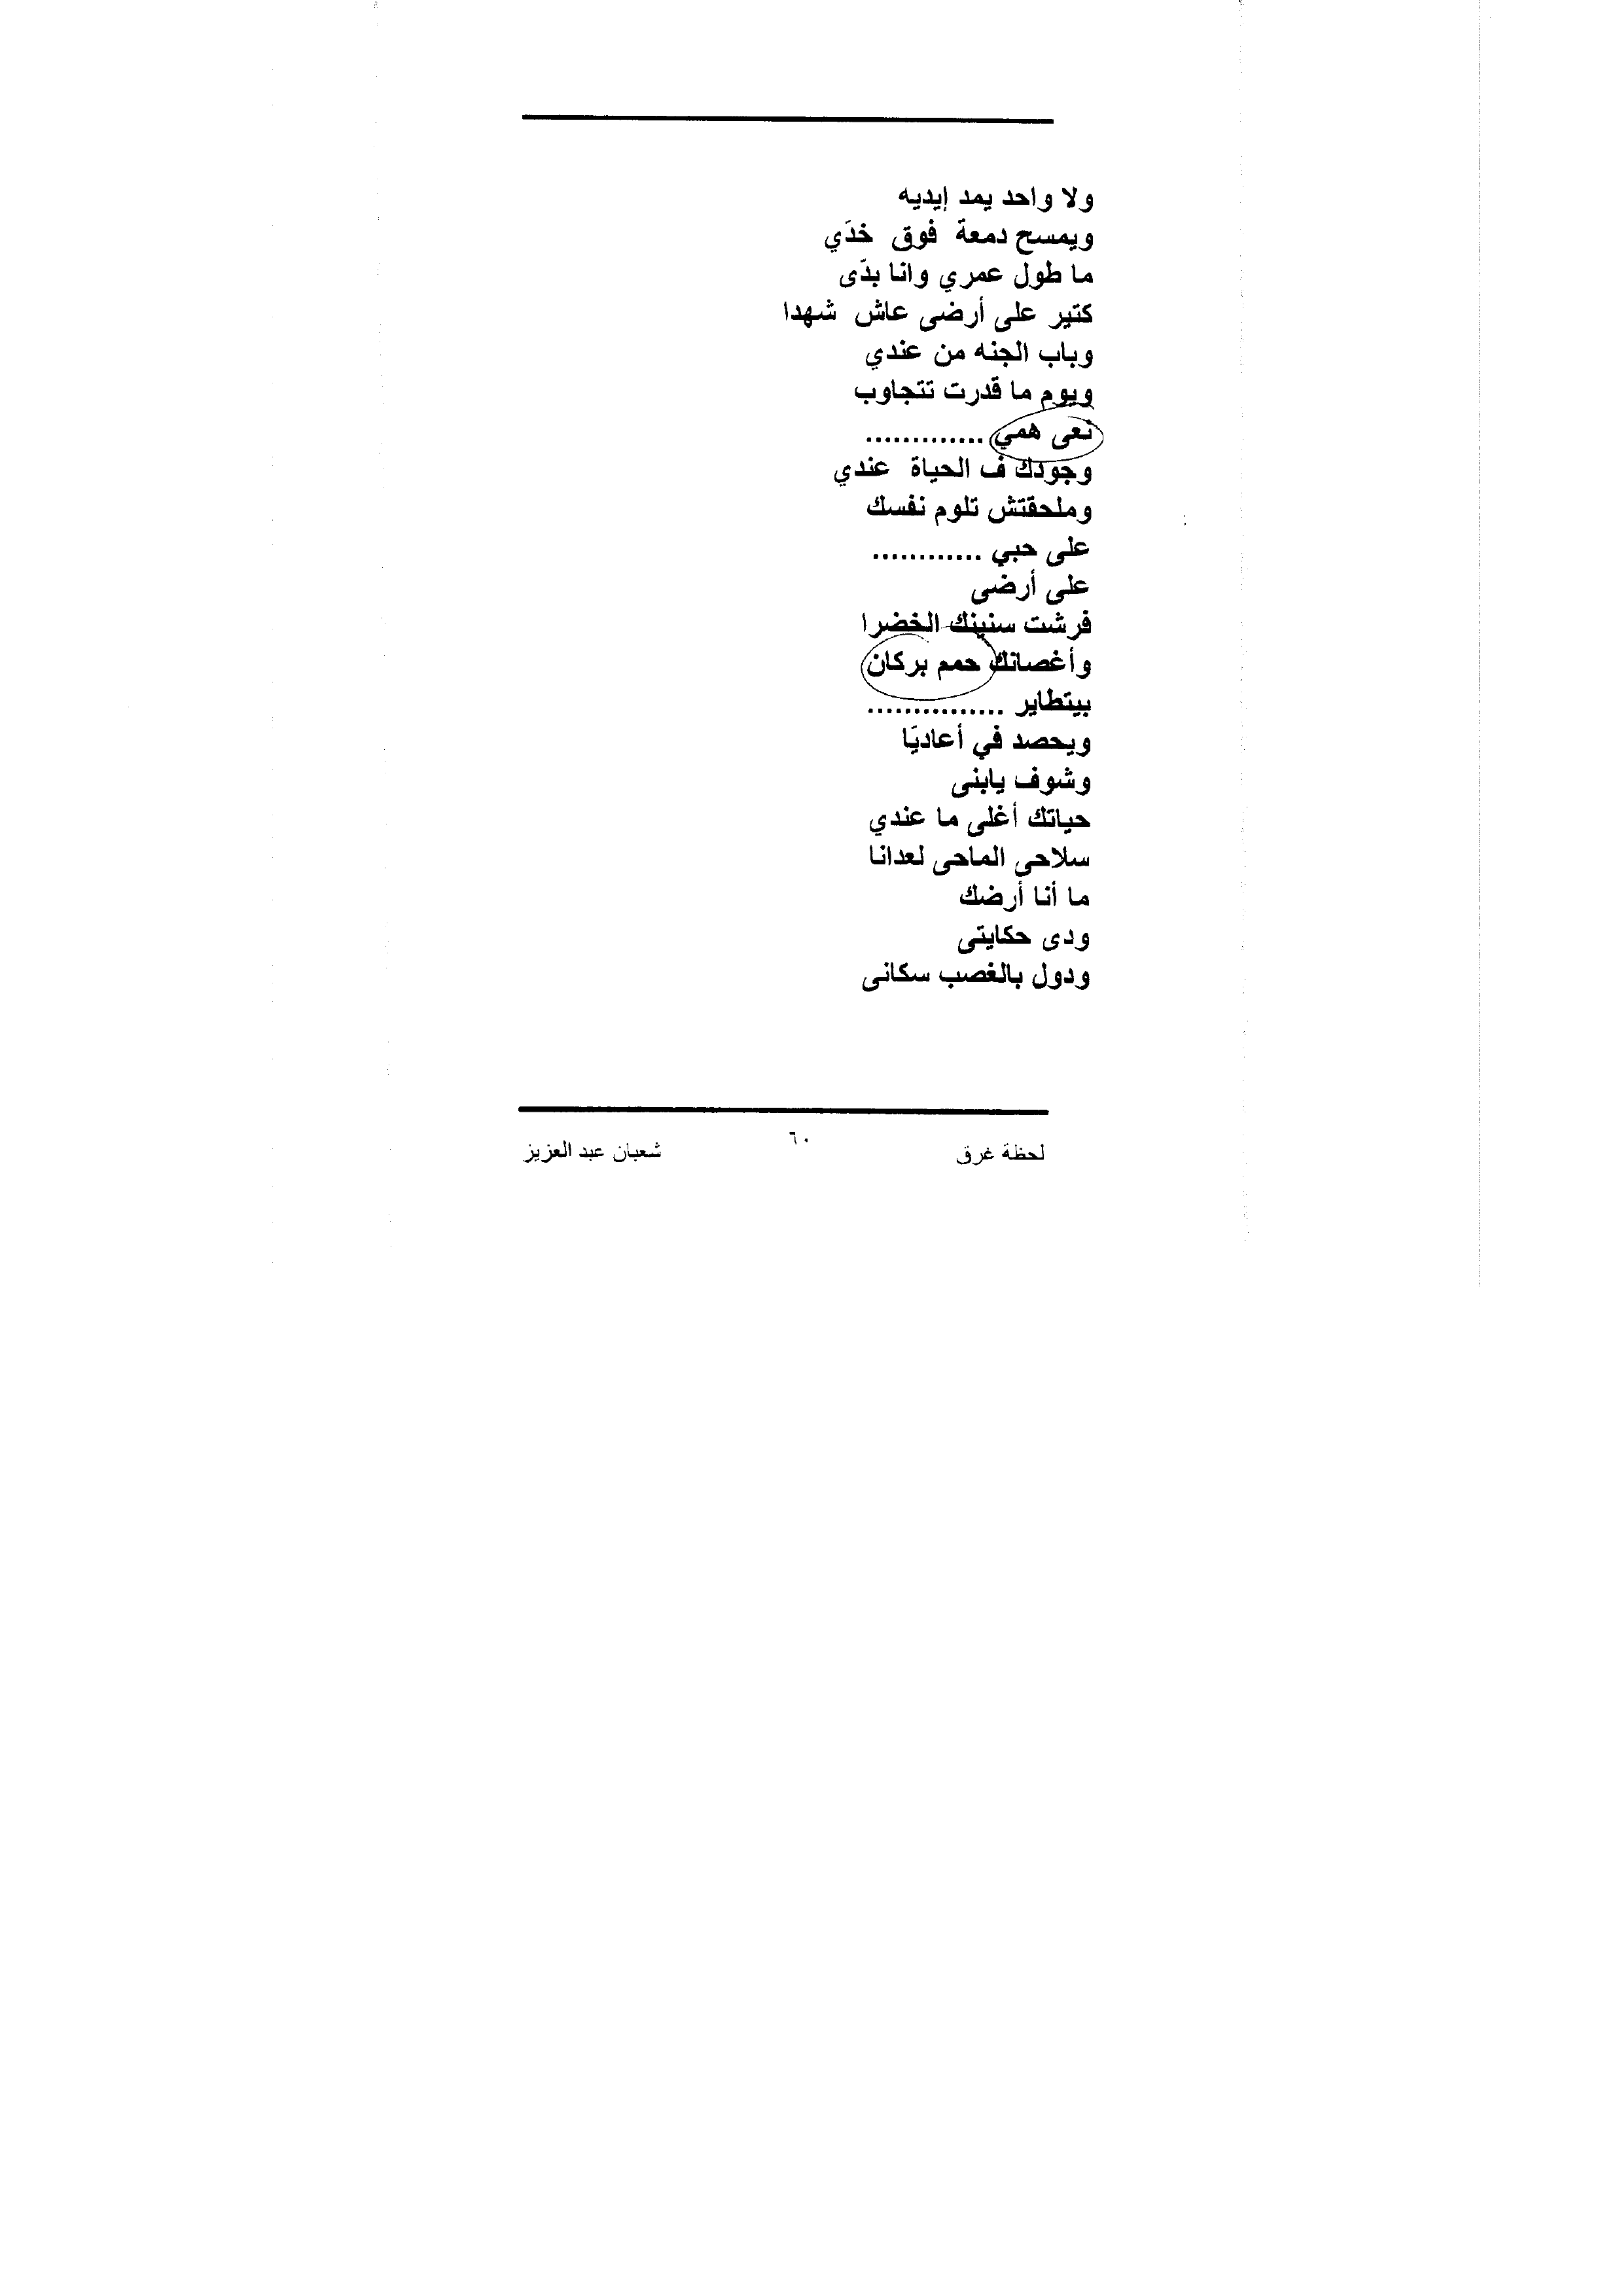 ولا واحد يمد إيديه
ويمسح دمعة فوق خدَي
ما طول عمري وانا بدَى
كتير على أرضى عاش شهدا
وباب الجنه من عندي
ويوم ما قدرت تتجاوب
نعى همي .............
وجودك ف الحياة عندي
وملحقتش تلوم نفسك
على حبي ............
على أرضى
فرشت سنينك الخضرا
وأغصانك حمم بركان
بيتطاير ...............
ويحصد في أعاديَا
وشوف يابنى
حياتك أغلى ما عندي
سلاحى الماحى لعدانا
ما أنا أرضك
ودى حكايتى
ودول بالغصب سكانى
لحظة غرق ٦٠ شعبان عبد العزيز